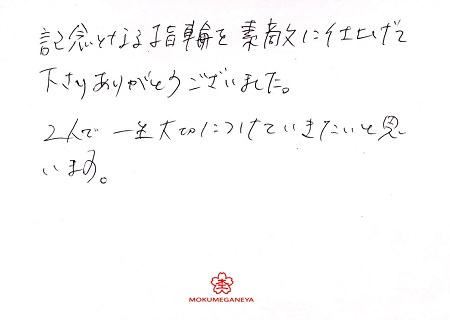 記念となる指輪を素敵に仕上げて
下さりありがとうございました。
2人で一生大切につけていきたいと思
います。
MOKUMEGANEYA